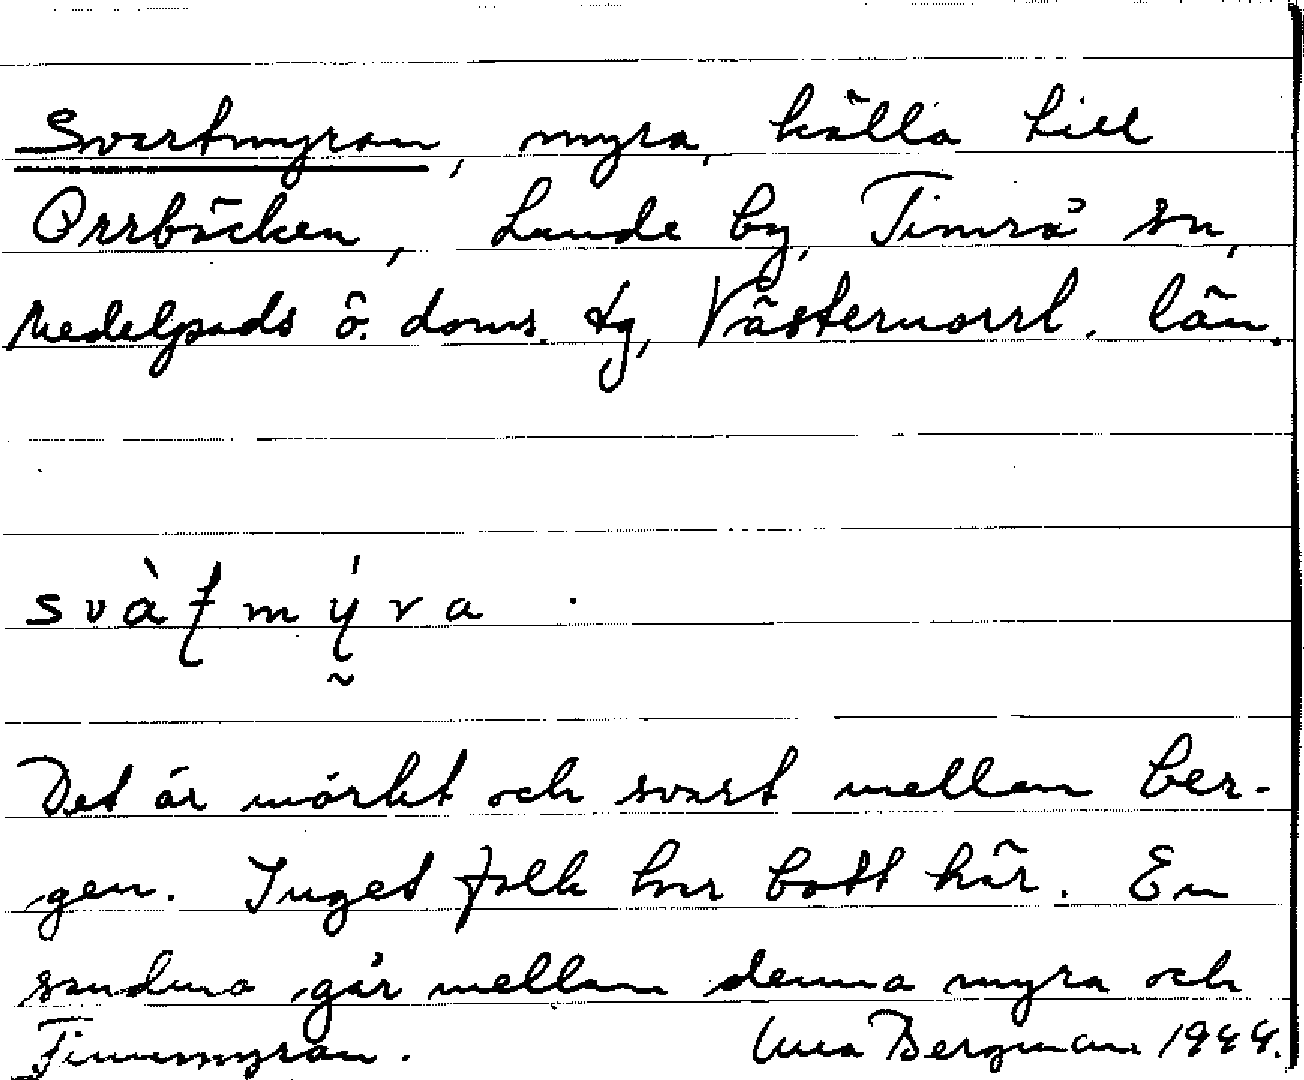 Svartmyran, myra, källa till
Orrbäcken, Lunde by, Timrå sn,
Medelpads ö. doms. tg, Västernorrl. län.
svàƭmýra
Det är mörkt och svart mellan ber-
gen. Inget folk har bott här. En
sandmo går mellan denna myra och
Finnmyran. Bergman 1944.